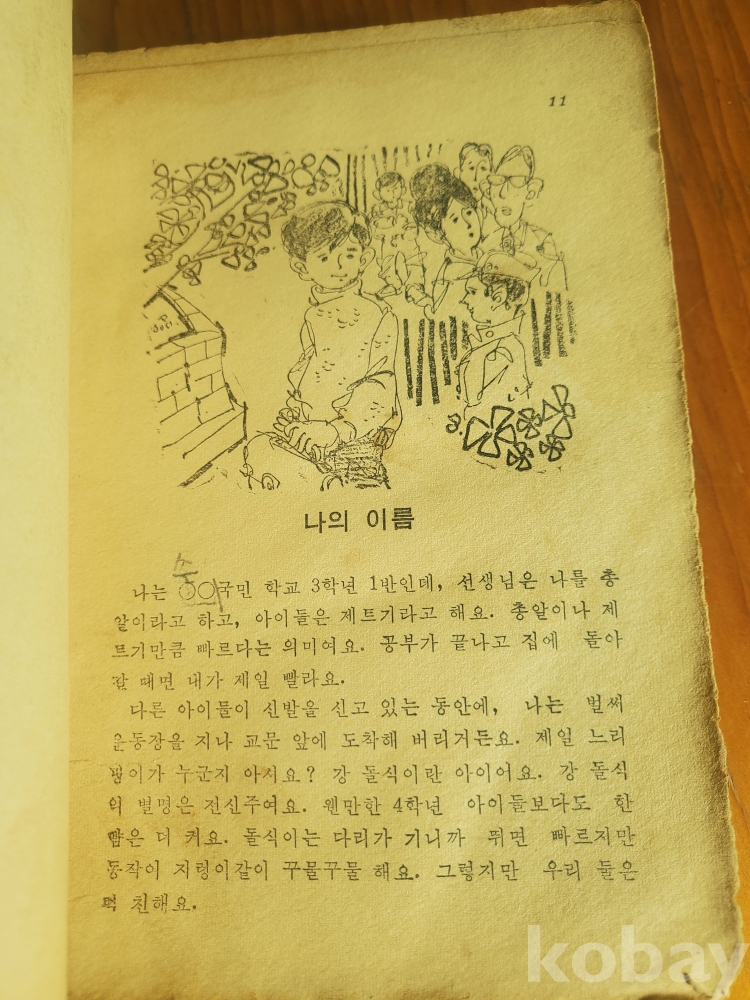 11
나의 이름
나는 ○○국민 학교 3학년 1반인데, 선생님은 나를 총
알이라고 하고, 아이들은 제트기라고 해요. 총알이나 제
트기만큼 빠르다는 의미여요. 공부가 끝나고 집에 돌아
갈 때면 내가 제일 빨라요.
다른 아이들이 신발을 신고 있는 동안에, 나는 벌써
운동장을 지나 교문 앞에 도착해 버리거든요. 제일 느리
팡이가 누군지 아시요? 강 돌식이란 아이어요. 강 돌식
의 별명은 전신주여요. 웬만한 4학년 아이들보다도 한
뼘은 더 커요. 돌식이는 다리가 기니까 뛰면 빠르지만
동작이 지렁이같이 꾸물꾸물 해요. 그렇지만 우리 둘은
퍽 친해요.
kobay